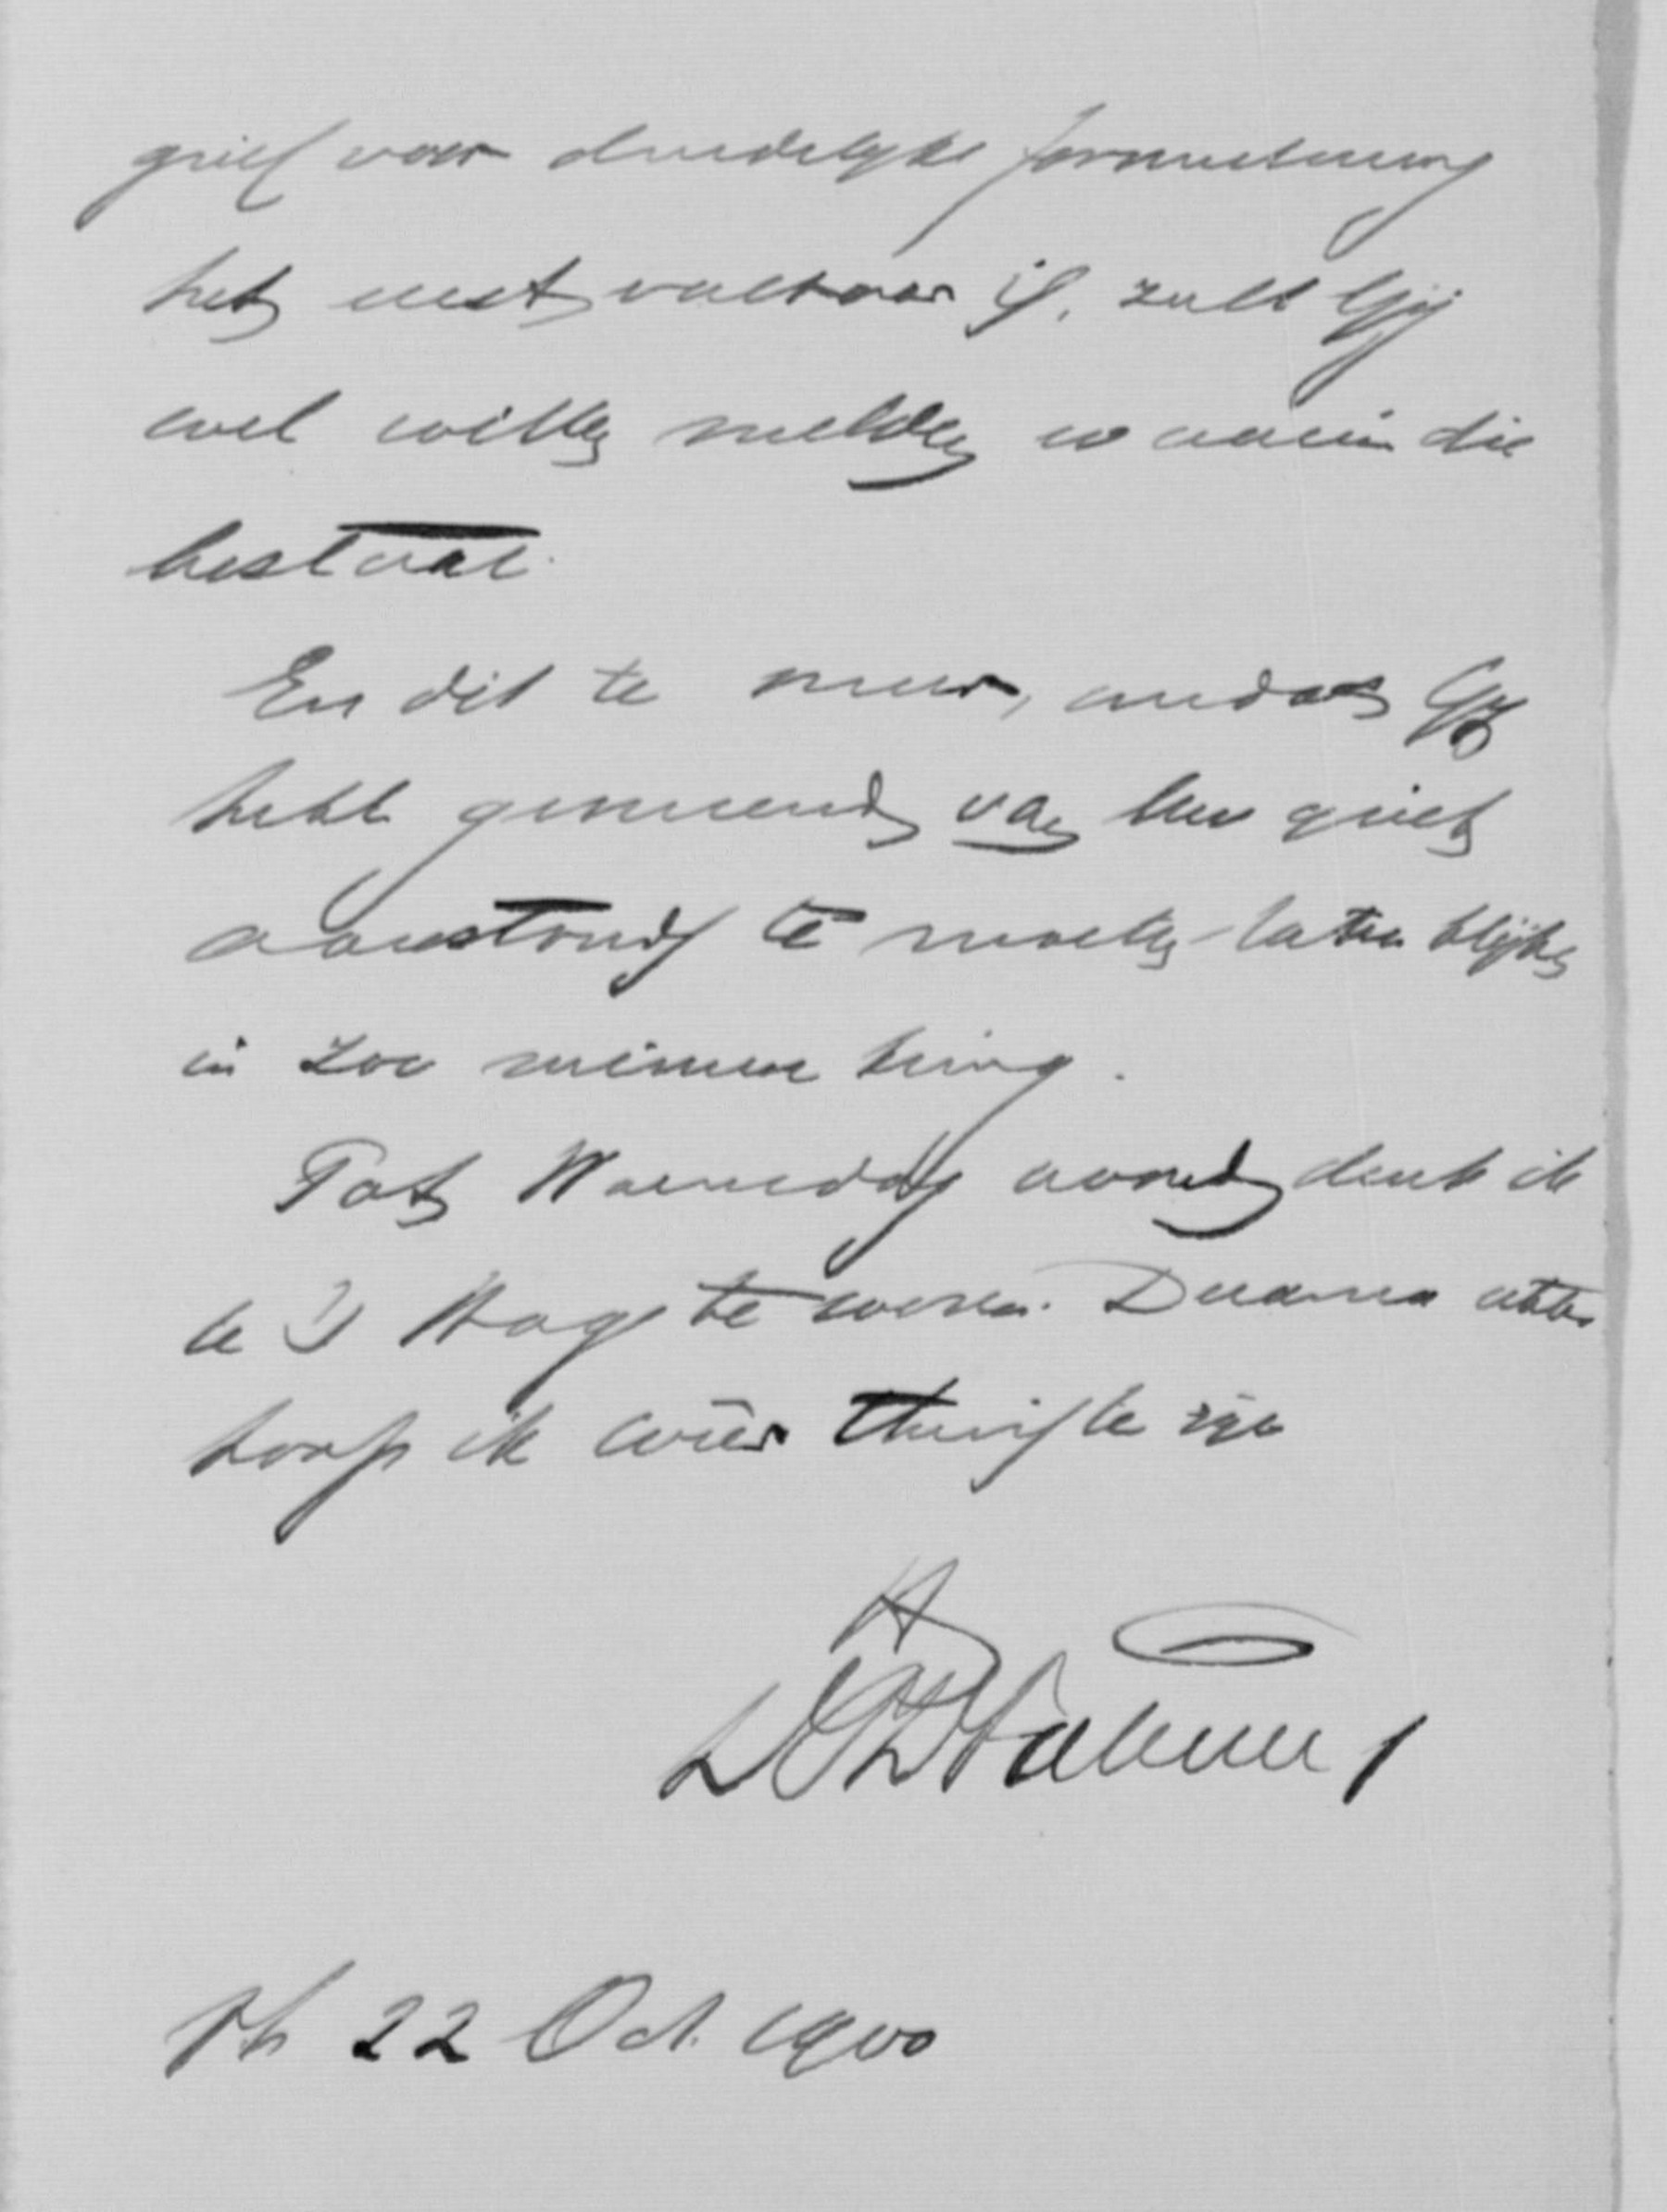 grief voor duidelijke formuleering
het meest vatbaar is, zult Gij
wel willen melden waarin die
bestaat.
En dit te meer, omdat Gij
hebt gemeend van Uw grief
aanstonds te moeten laten blijken
in zoo kring.
Tot Woensdag avond denk ik
te 's Hage te wezen. Daarna
hoop ik weêr thuis te zijn
22 Oct. 1900